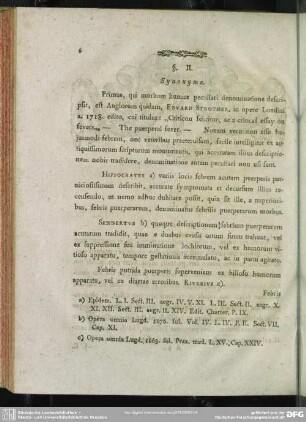 6
§. II.
Synonyma.
Primus, qui morbum hunce peculiari denominatione descri-
psit, est Anglorum quidam, EDVARD STROTHER, in opere Londini
a. 1718. edito, cui titulus: „Criticon febrium, or a critical essay on
fevers„ — The puerperal fever. — Notant vero non esse hu-
jusmodi febrem, anc veteribus praetervisam, facile intelligitur ex an-
tiquissimorum scriptorum monumentis, qui accuratam illius descriptio-
nem nobis tradidere, denominatione autem peculiari usi sunt.
HIPPOCRATES a) variis locis febrem acutam puerperis per-
niciosissimam describit, accurate symptomata et decursum illius re-
censendo, ut nemo nobis dubitare possit, quin sit ille, a recentio-
ribus, febris puerperarum, denominatae febris puerperarum morbus.
SENNERTUS b) quoque descriptionem febrium puerperarum
acutarum tradidit, quas e duabus causis autem fontem trahunt, vel
ex suppressione seu imminutione lochiorum, vel ex humorum vi-
tiosorum apparatu, tempore gestationis accumulato, ac in partu agitato.
Febris putrida puerperis superveniens ex bilioso humorum
apparatu, vel ex diaetae erroribus RIVERIUS c).
Febris
a) Epidem. L. I. Sect. III. aegr. IV. V. XI. L. III. Sect. II. aegr. X.
XI. XII. Sect. III. aegr. II. XIV. Edit. Charter. P. IX.
b) Opera omnia Lugd. 1676. fol. Vol. IV. L. IV. P. II. Sect. VII.
Cap. XI.
c) Opera omnia Lugd. 1663. fol. Prax. med. L. XV. Cap. XXIV.